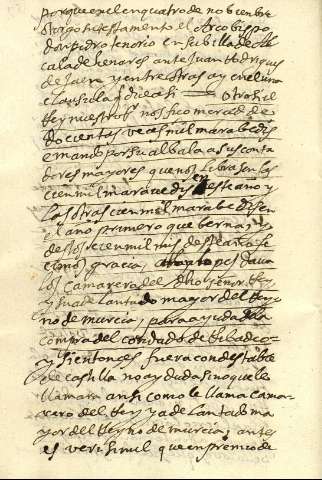 porque en el en quatro de nobienbre
otorgo su testamento el Arcobispo
don pedro tenorio en su billa de Al
cala de henares ante Juan Rodrigues
de Jaen y entre otras ay en el una
clausula que dice asi otrosi el
Rey nuestro señor nos fiço merced de
docientas veces mil marabedis
emando por su albala a sus conta
dores mayores que nos librasen los
cien mil maravedis en este año y
las otras cien mil marabedis en
el año primero que berna, y
destos cien mil de este año fe
cimos gracia a Rui lopes davà
los camarero del dho señor Rey
y su adelantado mayor del Rey
no de murcia, para ayuda de la
compra del condado de Ribadeo
y si entonces fuera condestable
de castilla no ay duda sino que le
llamara ansi como le llama cama
rero del Rey y adelantado ma
yor del Reyno de murcia, antes
es verisimil que en premio de